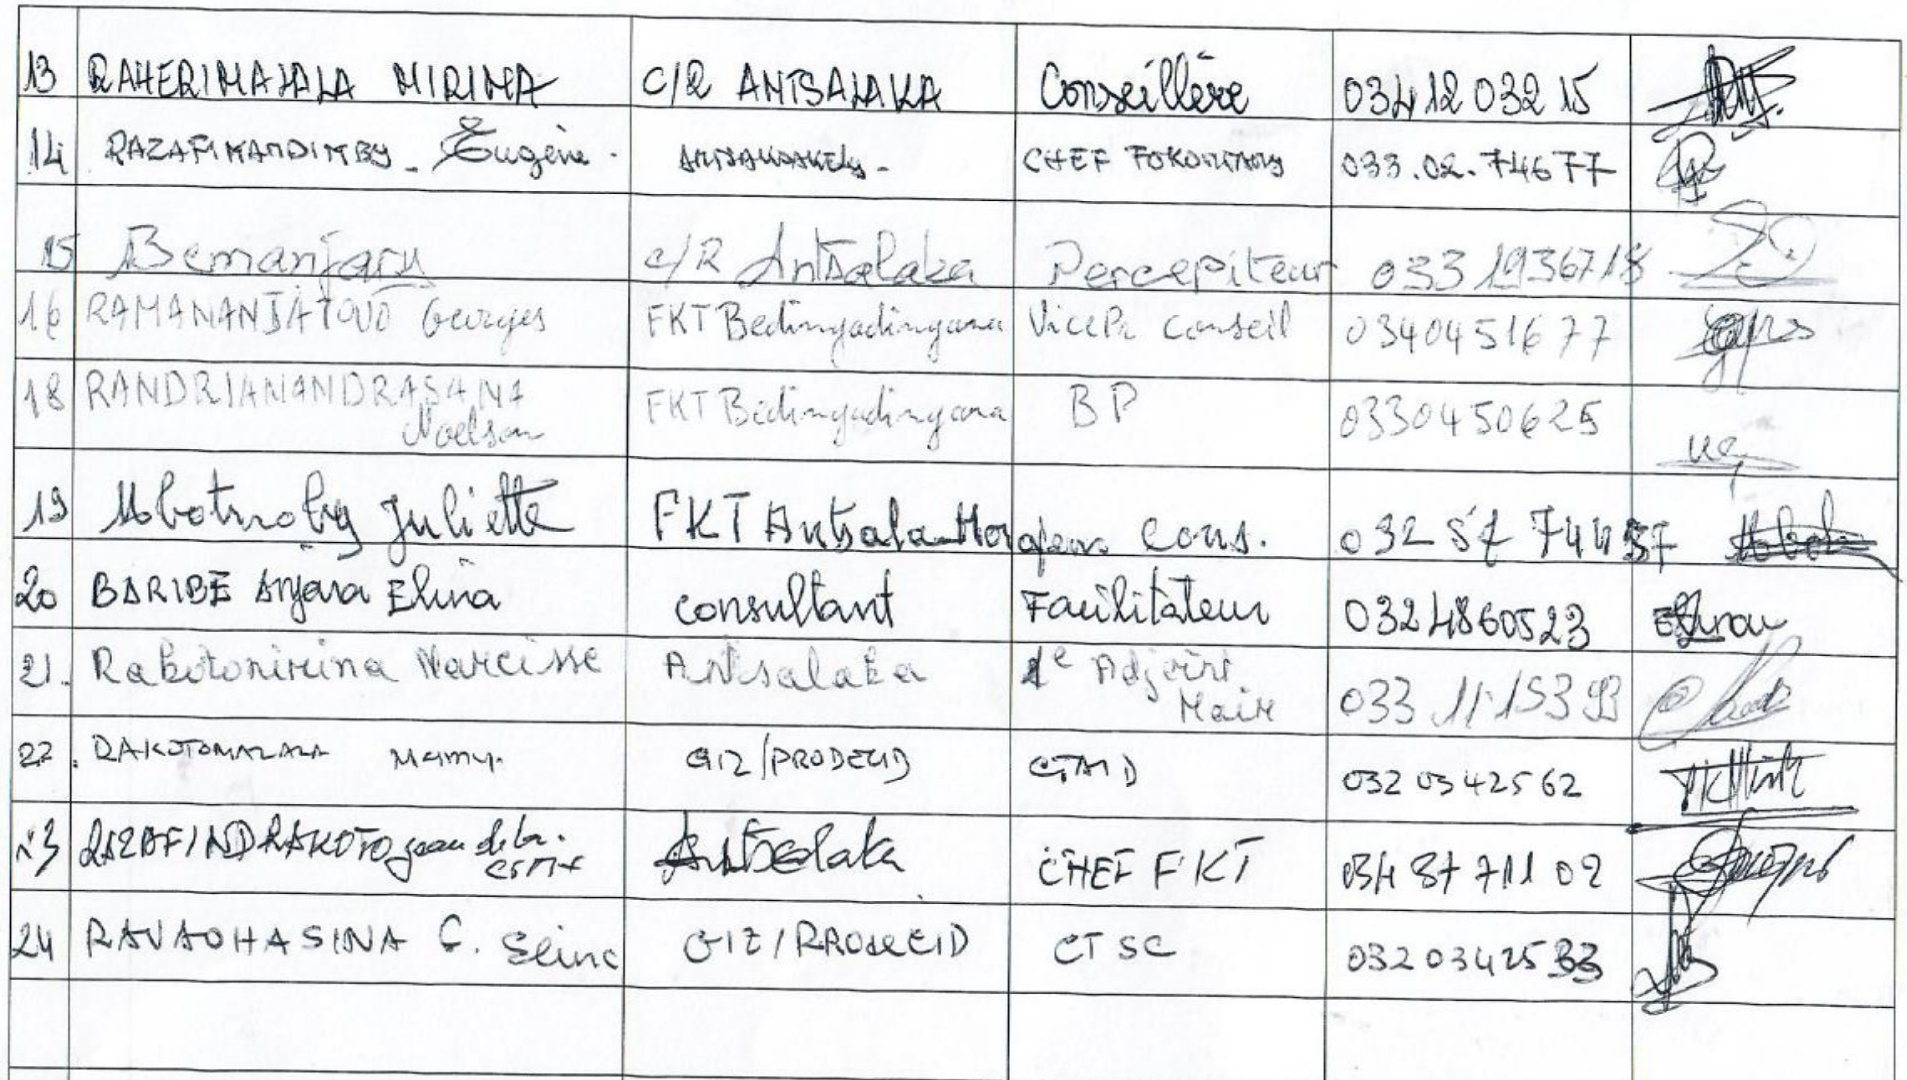 13 RAHERIMALALA MIRINA C/R ANTSALAKA Conseillère 034 12 032 15
14 RAZAFIMANDIMBY Eugène. CHEF FOKONTANY 033.02.746 77
15 Bemanjary C/R Antsalaka Percepiteur 033 1936718
16 RAMANANJATOVO Georges FKT Bedingadingana Vice Pr Conseil 0340451677
18 RANDRIANANDRASANA FKT Bedingadingana BP 0330450625
Noelson
19 Juliette FKT Antsala Cons. 032 57 744
20 BARIBE Anjara Elina consultant Facilitateur 0324860523
21. Rakotonirina Narcisse Antsalaka 1e Adjoint
Maire 033 11 153 93
22. RAKOTOMALALA Mamy. GIZ/PRODECID CTMD 032 03 425 62
23 RAZAFINDRAKOTO Jean de la Antsalaka CHEF FKT 034 37 711 02
24 RAVAOHASINA C. Seline GIZ/PRODECID CT SC 032 03 425 33